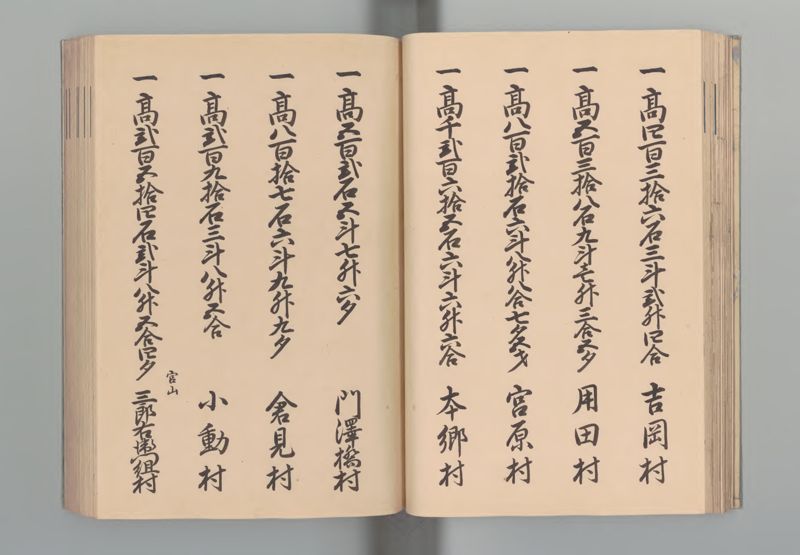 一 高四百三拾六石三斗弐升四合 吉岡村
一 高五百三拾八石九斗壱升三合五夕 用田村
一 高八百弐拾石六斗八升八合七夕五才 宮原村
一 高千弐百六拾五石六斗六升六合 本郷村
一 高五百弐石五斗七升六夕 門澤橋村
一 高八百拾七石六斗九升九夕 倉見村
一 高弐百九拾石三斗八升五合 小動村
宮山
一 高弐百五拾四石弐斗八升五合四夕 三郎右衛門組村